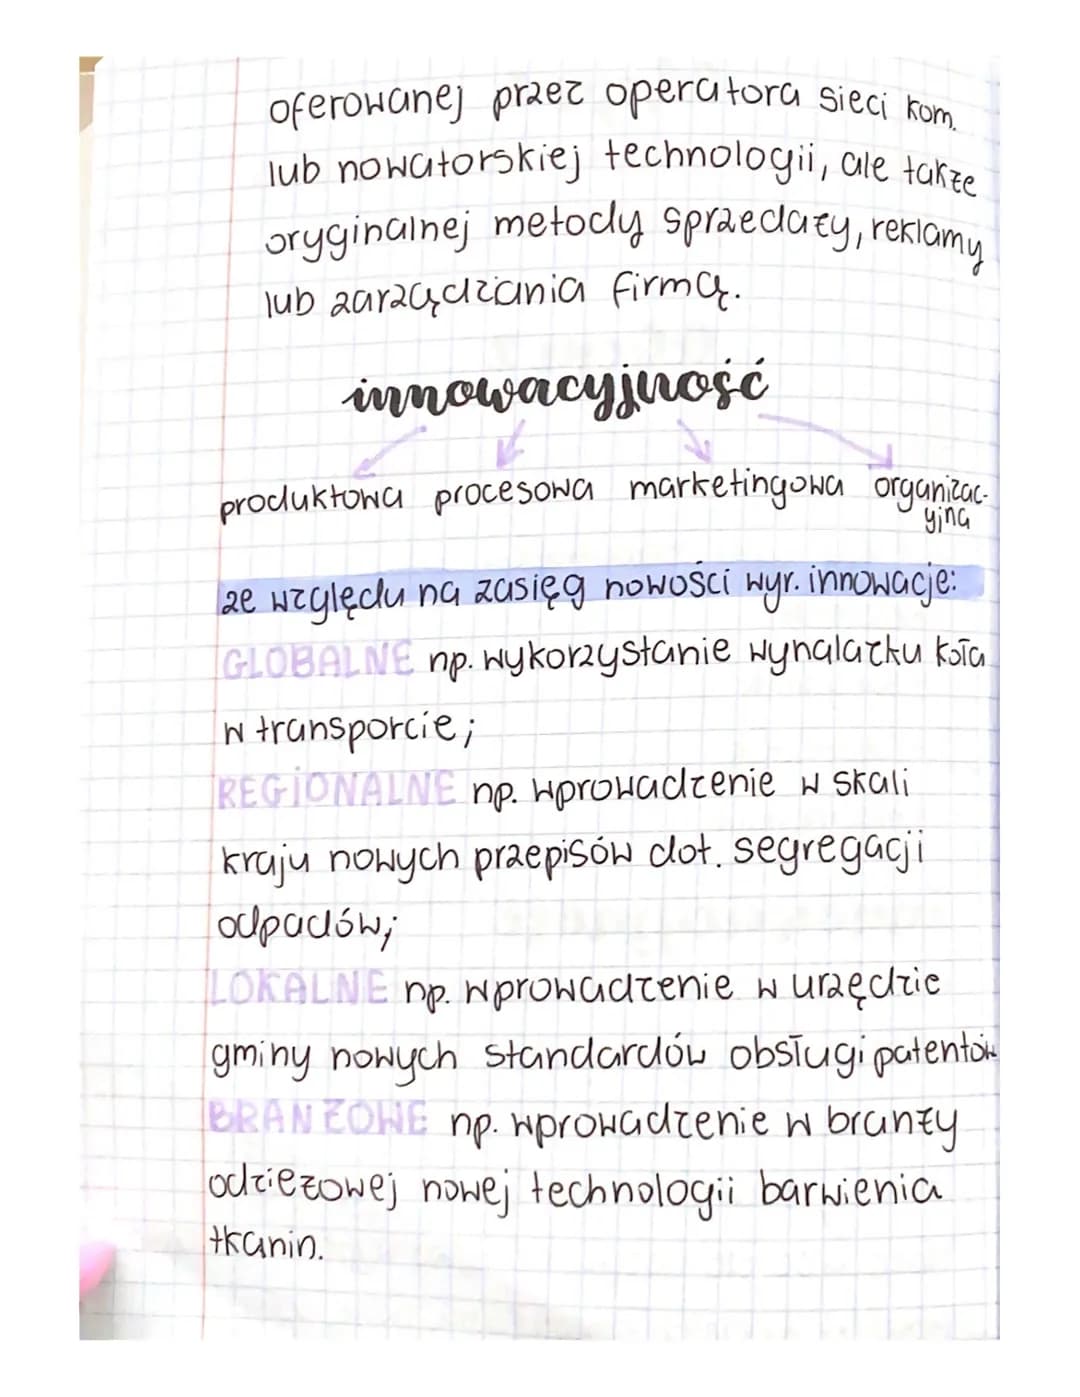 oferowanej przez operatora sieci kom.
lub nowatorskiej technologii, ale także
oryginalnej metody sprzedaży, reklamy
lub zarządzania firmą.
innowacyjność
produktowa procesowa marketingowa organizac-
yjna
ze względu na zasięg nowości wyr. innowacje:
GLOBALNE np. wykorzystanie wynalazku koła
w transporcie;
REGIONALNE np. wprowadzenie w skali
kraju nowych przepisów dot. segregacji
odpadów;
LOKALNE np. wprowadzenie w urzędzie
gminy nowych standardów obsługi patentów
BRANŻOWE np. wprowadzenie w branży
odzieżowej nowej technologii barwienia
tkanin.